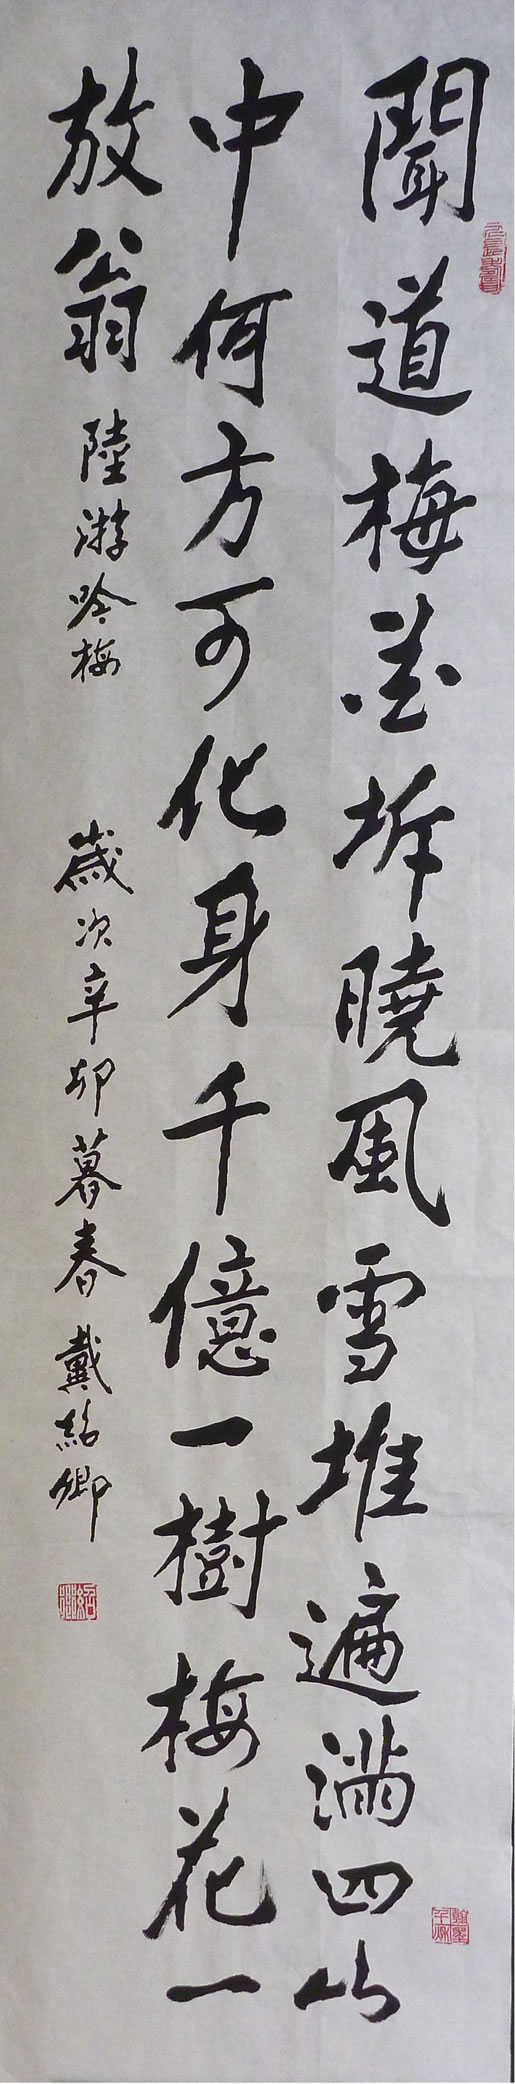 聞道梅花坼曉風雪堆遍滿四山
中何方可化身千億一樹梅花一
放翁 陸游吟梅 歲次辛卯暮春 戴紹卿